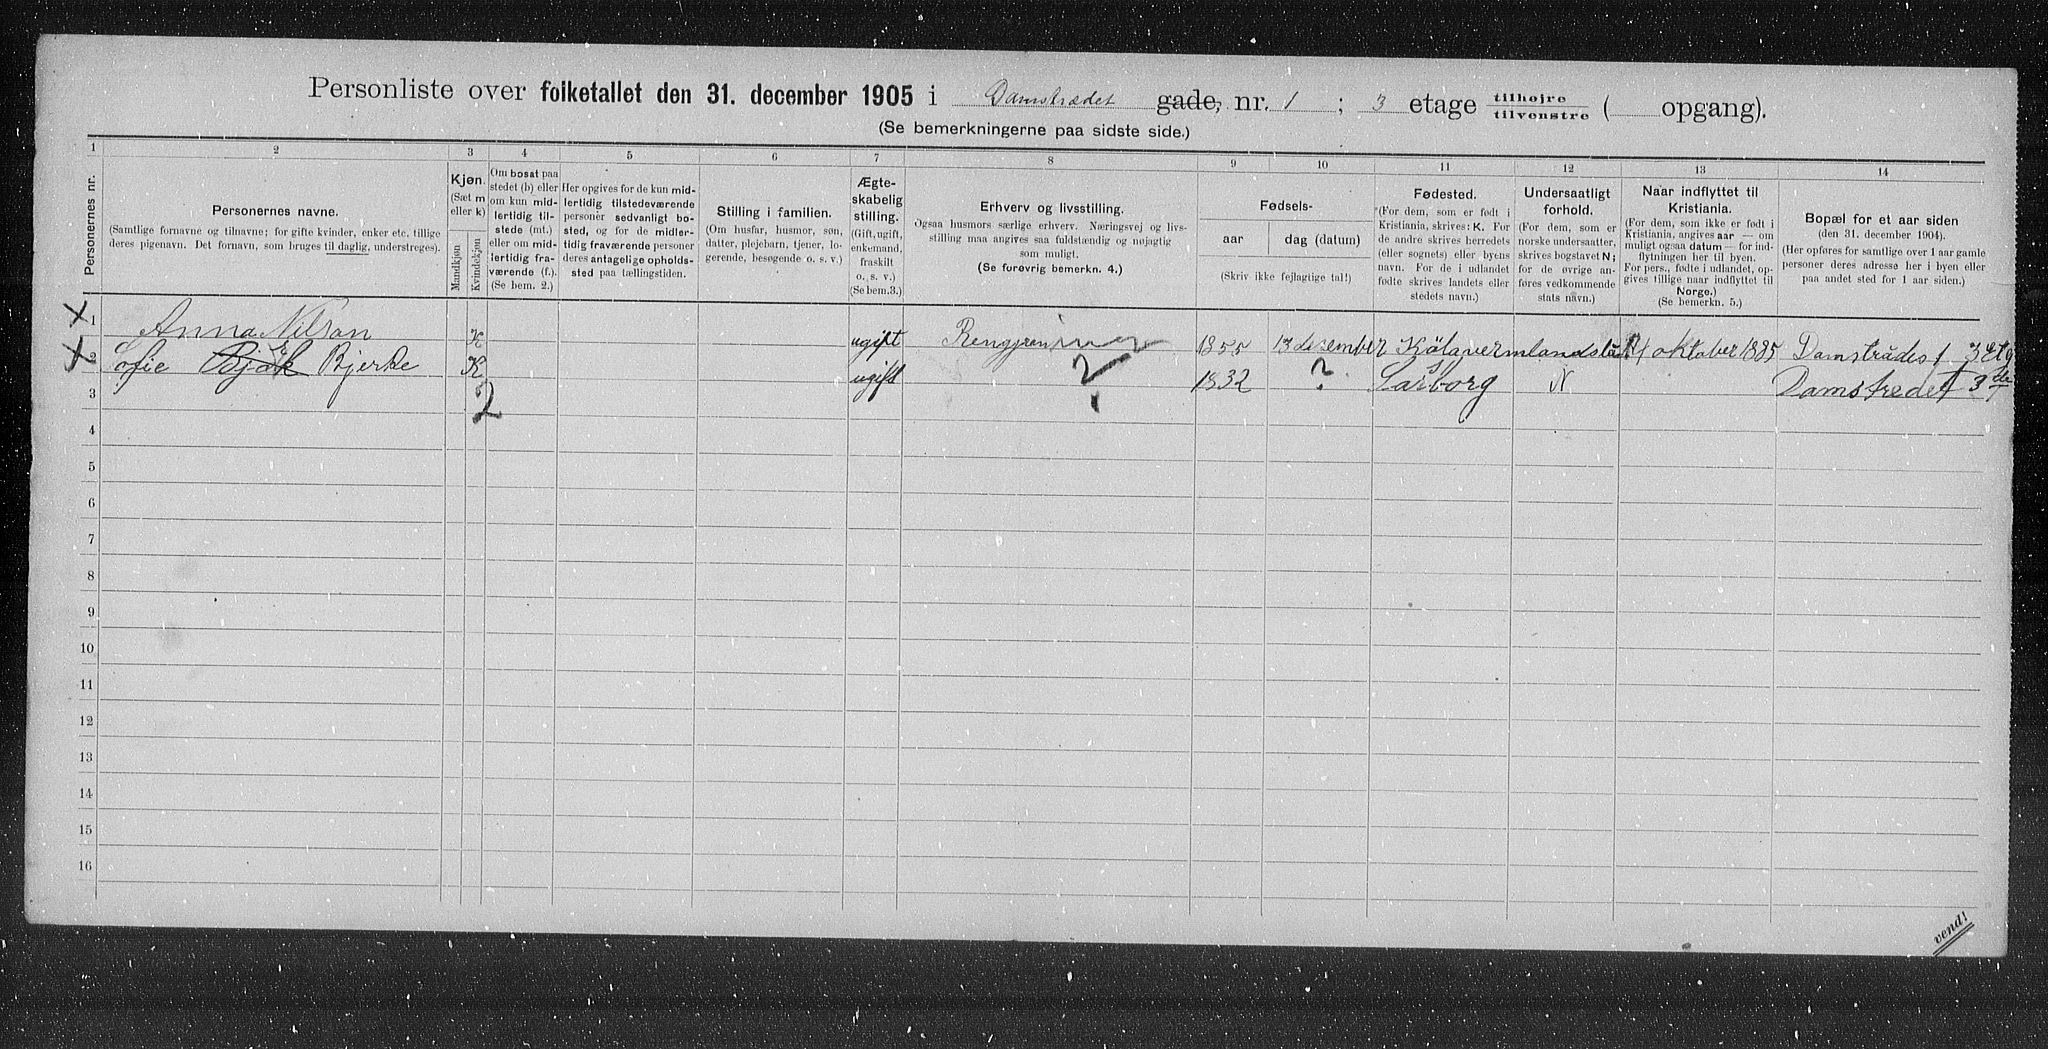 Personliste over folketallet den 31. december 1905 i Damstrædet gade, nr. 1 ; 3 etage tilhøjre tilvenstre ( opgang).
(Se bemerkningerne paa sidste side.)
1 2 3 4 5 6 7 8 9 10 11 12 13 14
Personernes nr.
Personernes navne.
(Samtlige fornavne og tilnavne; for gifte kvinder, enker etc. tillige
deres pigenavn. Det fornavn, som bruges til daglig, understreges).
Kjøn.
(Sæt m
eller k)
Mandkjøn
Kvindekjøn
Om bosat paa
stedet (b) eller
om kun mid-
lertidig til-
stede (mt.)
eller om mid-
lertidig fra-
værende (f.).
(Se bem. 2.)
Her opgives for de kun mid-
lertidig tilstedeværende
personer sedvanligt bo-
sted, og for de midler-
tidig fraværende personer
deres antagelige opholds-
sted paa tællingstiden.
Stilling i familien.
(Om husfar, husmor, søn,
datter, plejebarn, tjener, lo-
gerende, besøgende o. s. v.)
Ægte-
skabelig
stilling.
(Gift, ugift,
enkemand,
fraskilt
o. s. v.)
(Se bem.3.)
Erhverv og livsstilling.
Ogsaa husmors særlige erhverv. Næringsvej og livs-
stilling maa angives saa fuldstændig og nøjagtig
som muligt.
(Se forøvrig bemerkn. 4.)
Fødsels-
aar
dag (datum)
(Skriv ikke fejlagtige tal!)
Fødested.
(For dem, som er født i
Kristiania, skrives: K. For
de andre skrives herredets
(eller sognets) eller byens
navn. For de i udlandet
fødte skrives landets eller
stedets navn.)
Undersaatligt
forhold.
(For dem, som er
norske undersaatter,
skrives bogstavet N;
for de øvrige an-
føres vedkommende
stats navn.)
Naar indflyttet til
Kristiania.
(For dem, som ikke er født i
Kristiania, angives aar — om
muligt ogsaa datum — for ind-
flytningen her til byen.
For pers., fødte i udlandet, op-
gives tillige naar indflyttet til
Norge.)
(Se bemerkn. 5.)
Bopæl for et aar siden
(den 31. december 1904).
(Her opføres for samtlige over 1 aar gamle
personer deres adresse her i byen eller
paa andet sted for 1 aar siden.)
X 1 Anna Nilson K ugift 1855 13 desember oktober 1885 Damstrådes 1 3 Etg
X 2 Sofie Bjerke K ugift ? 1832 ? Sarborg N Damstredet 3
3 2
4
5
6
7
8
9
10
11
12
13
14
15
16
vend!